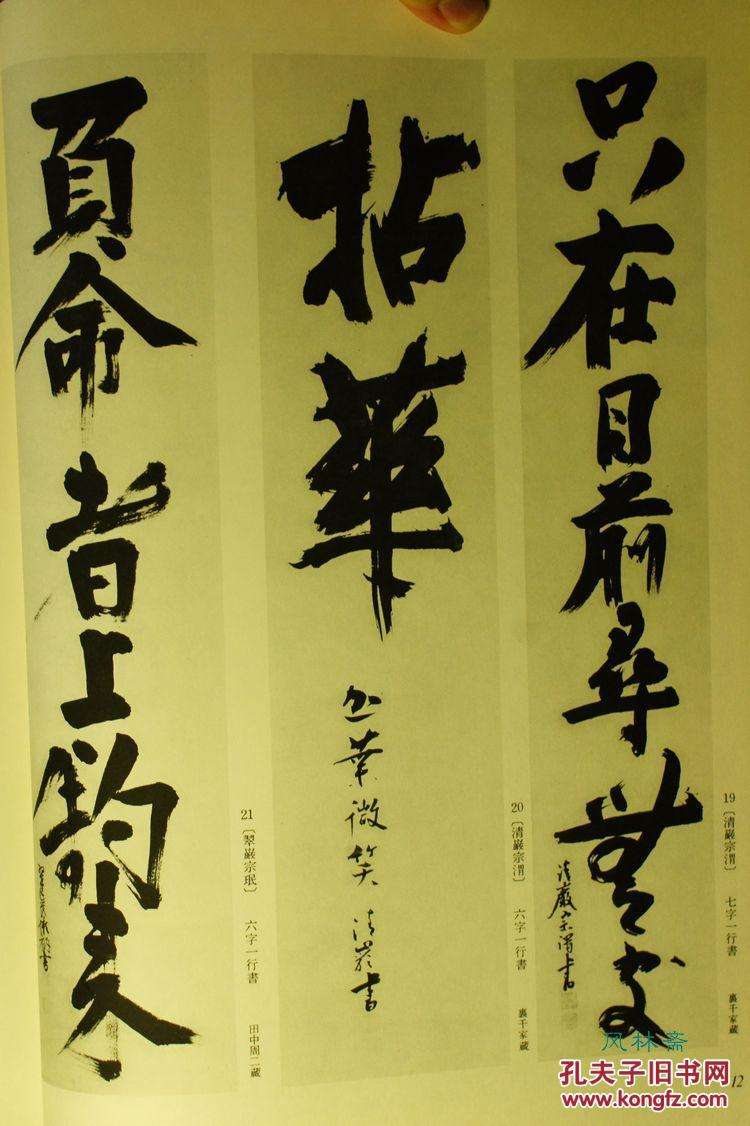 只在目前尋無處
清巖宗渭書
19〔清巖宗渭〕 七字一行書 裏千家蔵
拈華
迦葉微笑 清岩書
20〔清巖宗渭〕 六字一行書 裏千家蔵
負命者上鈎来
21〔翠巖宗珉〕 六字一行書 田中周二蔵
12
风林斋
孔夫子旧书网
www.kongfz.com